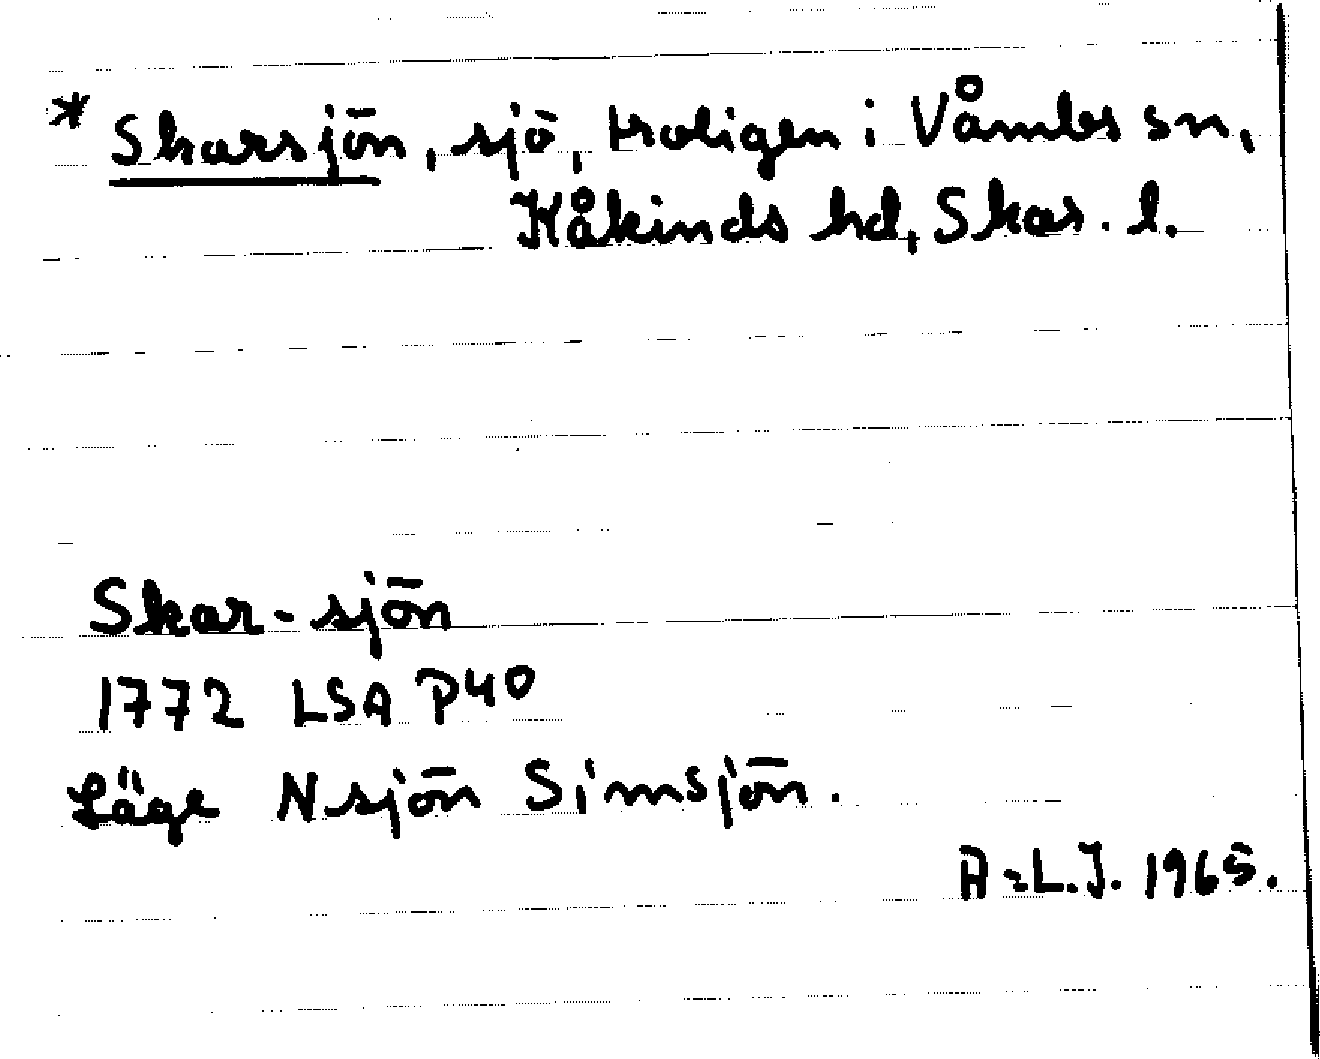 * Skarsjön, sjö, troligen i Våmbs sn,
Kåkinds hd, Skar. l.
Skar-sjön
1772 LSA P40
Läge N sjön Simsjön.
A-L.J. 1965.